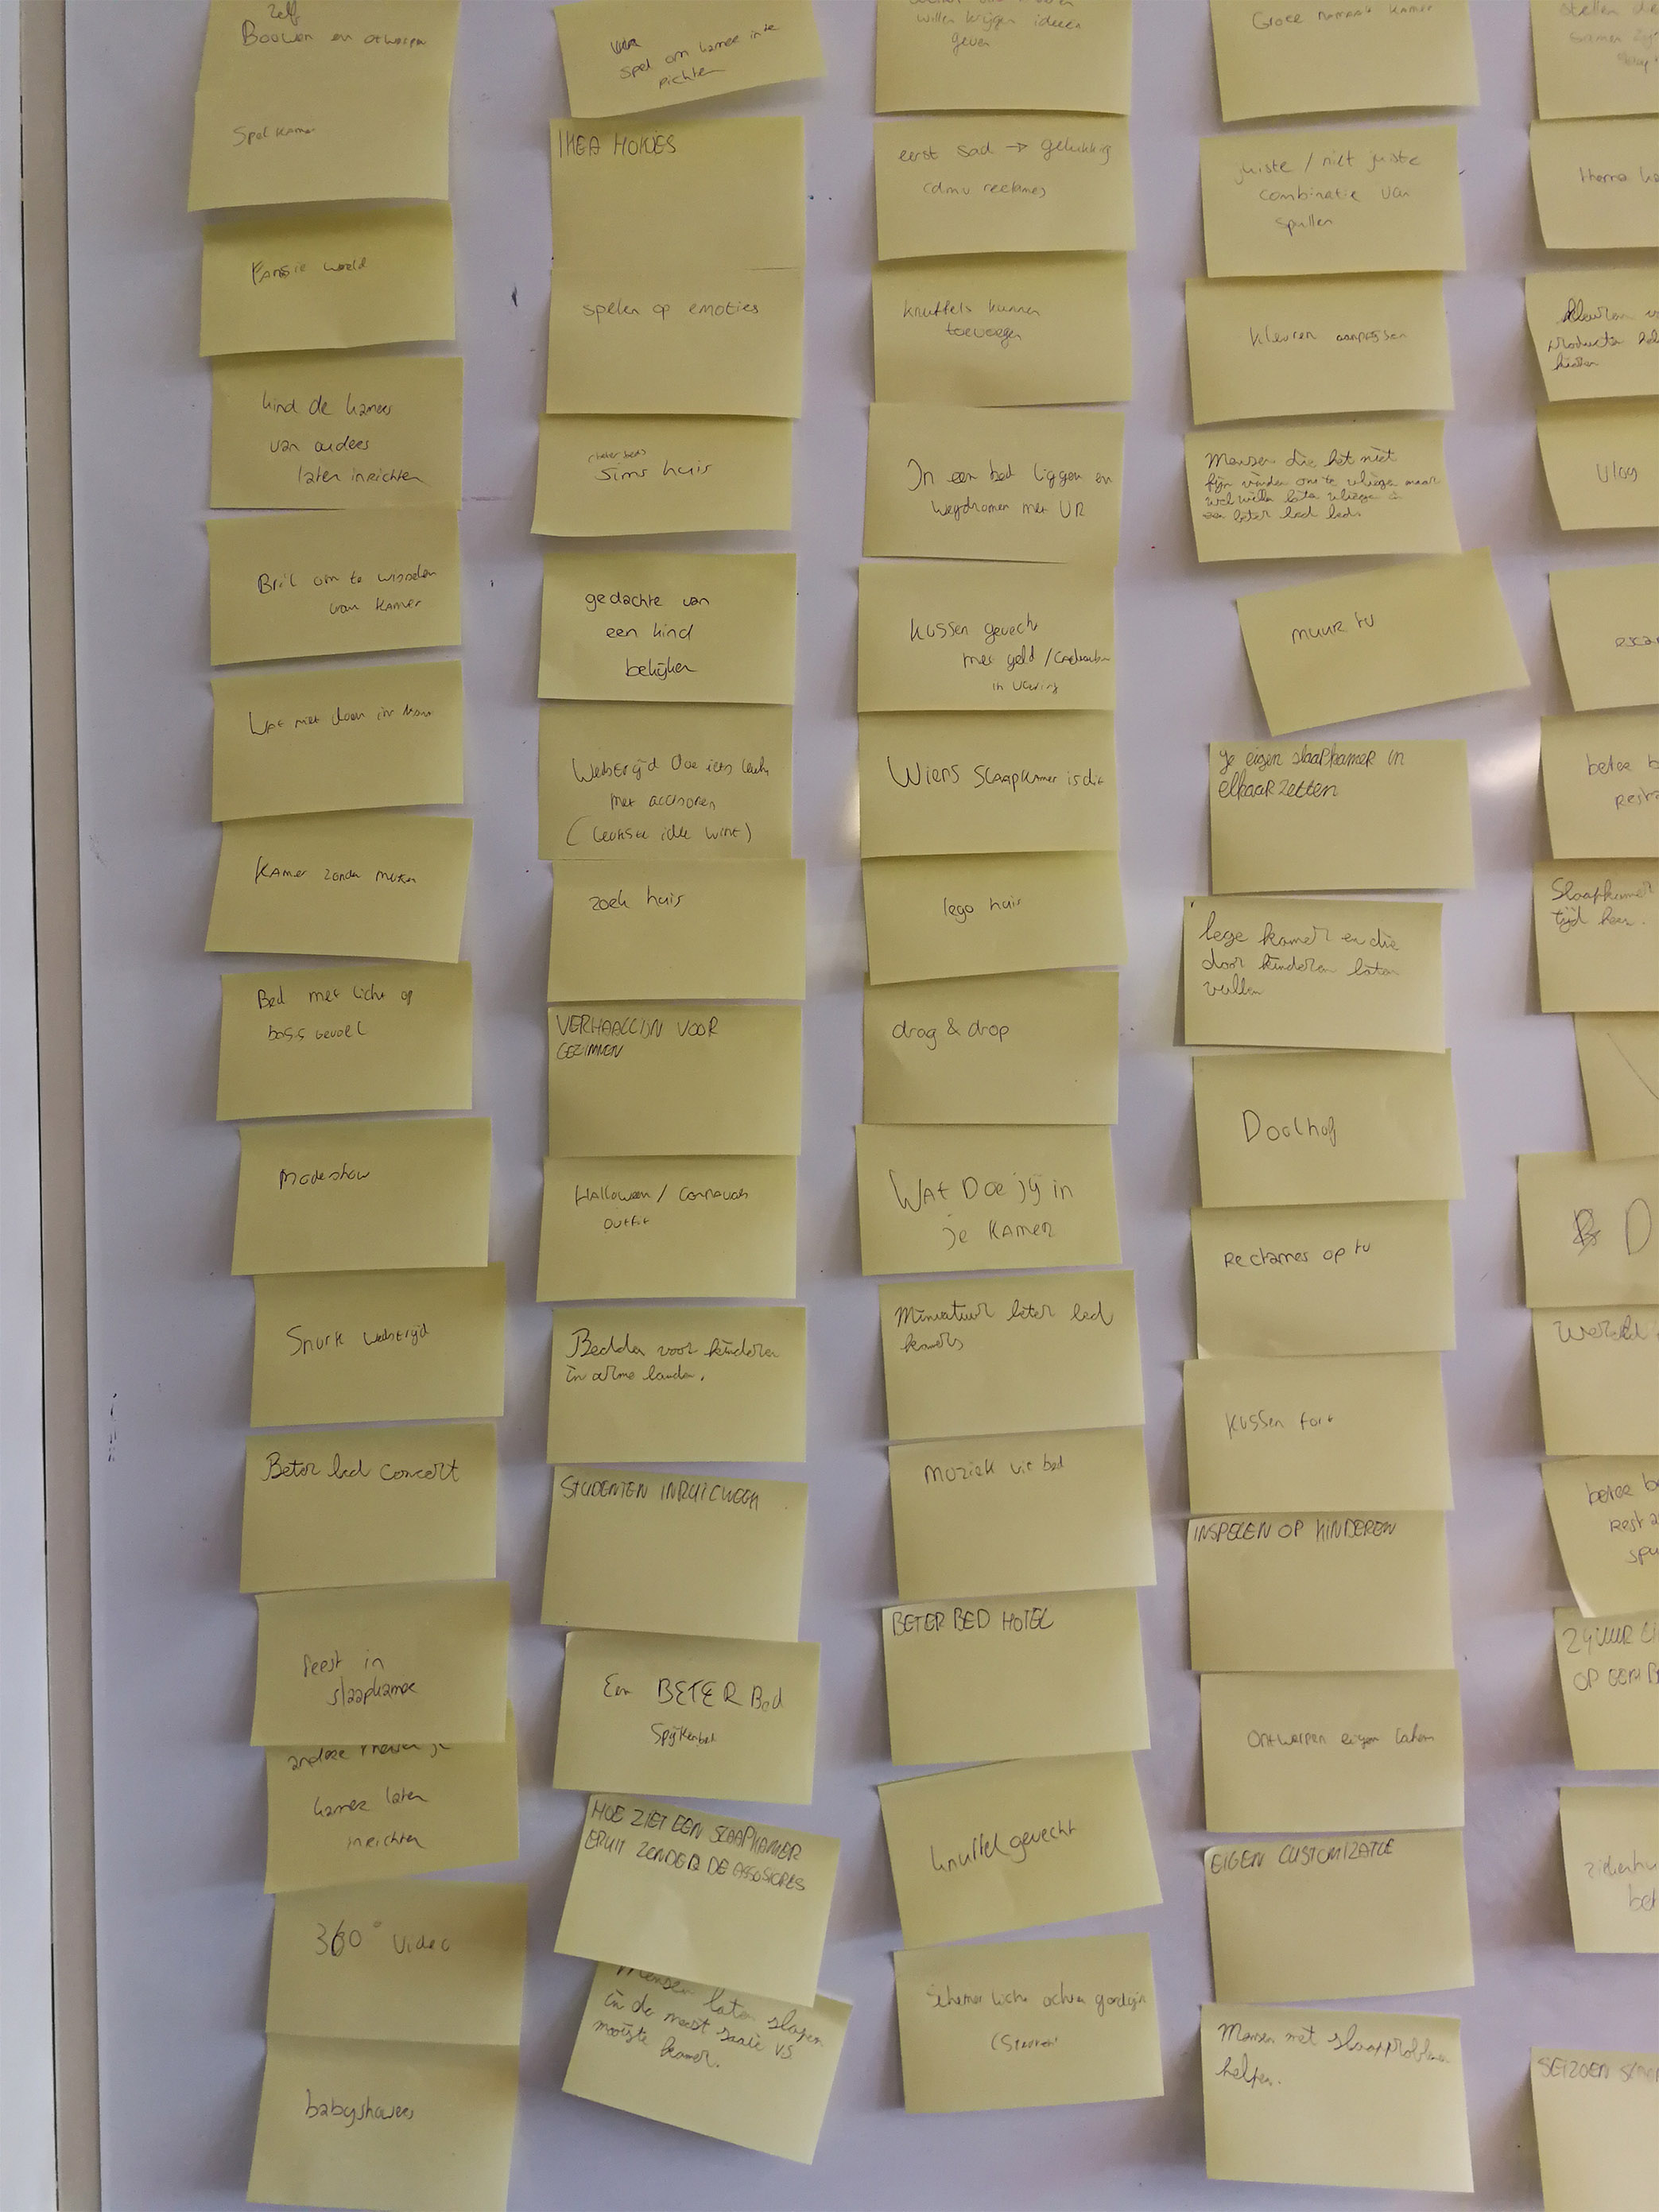 Zelf
Bouwen en ontwerpen
Spel kamer
wereld
kind de kamer
van ouders
laten inrichten
Bril om te wisselen
van kamer
Wat niet doen in
Kamer zonder
Bed met licht op
boss gevoel
Modeshow
Snurk wedstrijd
Beter bed concert
feest in
slaapkamer
andere mensen je
kamer laten
inrichten
360° video
babyshowers
spel om kamer in te
richten
IKEA HOKJES
spelen op emoties
Sims huis
gedachte van
een kind
bekijken
Wedstrijd Doe iets leuks
met
(Leukste idee wint)
zoek huis
VERHAALLIJN VOOR
GEZINNEN
Halloween / Carnavals
outfit
Bedden voor kinderen
in arme landen.
STUDENTEN INRUILWEEK
Een BETER Bed
Spijkerbed
HOE ZIET EEN SLAAPKAMER
ERUIT ZONDER DE ASSOSIORES
Mensen laten slapen
in de meest saaie VS
mooiste kamer.
willen krijgen ideeën
geven
eerst sad → gelukkig
(dmv reclames)
knuffels kunnen
toevoegen
In een bed liggen en
wegdromen met VR
Kussen gevecht
met geld /
in
Wiens slaapkamer is dit
lego huis
drag & drop
Wat Doe jij in
je Kamer
Miniatuur beter bed
kamers
Muziek uit bed
BETER BED HOTEL
knuffel gevecht
Schemer licht achter gordijn
Grote namaak kamer
juiste / niet juiste
combinatie van
spullen
kleuren aanpassen
Mensen die het niet
fijn vinden om te vliegen maar
wel willen laten vliegen in
een beter bed bed.
muur tv
Je eigen slaapkamer in
elkaar zetten
lege kamer en die
door kinderen laten
vullen
Doolhof
Reclames op tv
Kussen fort
INSPELEN OP KINDEREN
Ontwerpen eigen laken
EIGEN CUSTOMIZATIE
Mensen met slaapproblemen
helpen.
stellen
thema
kleuren
producten
kiezen
Vlog
beter b
Rest
Slaapkamer
tijd heen.
D
Wereld
beter b
Rest
24 UUR
OP EEN B
SEIZOEN